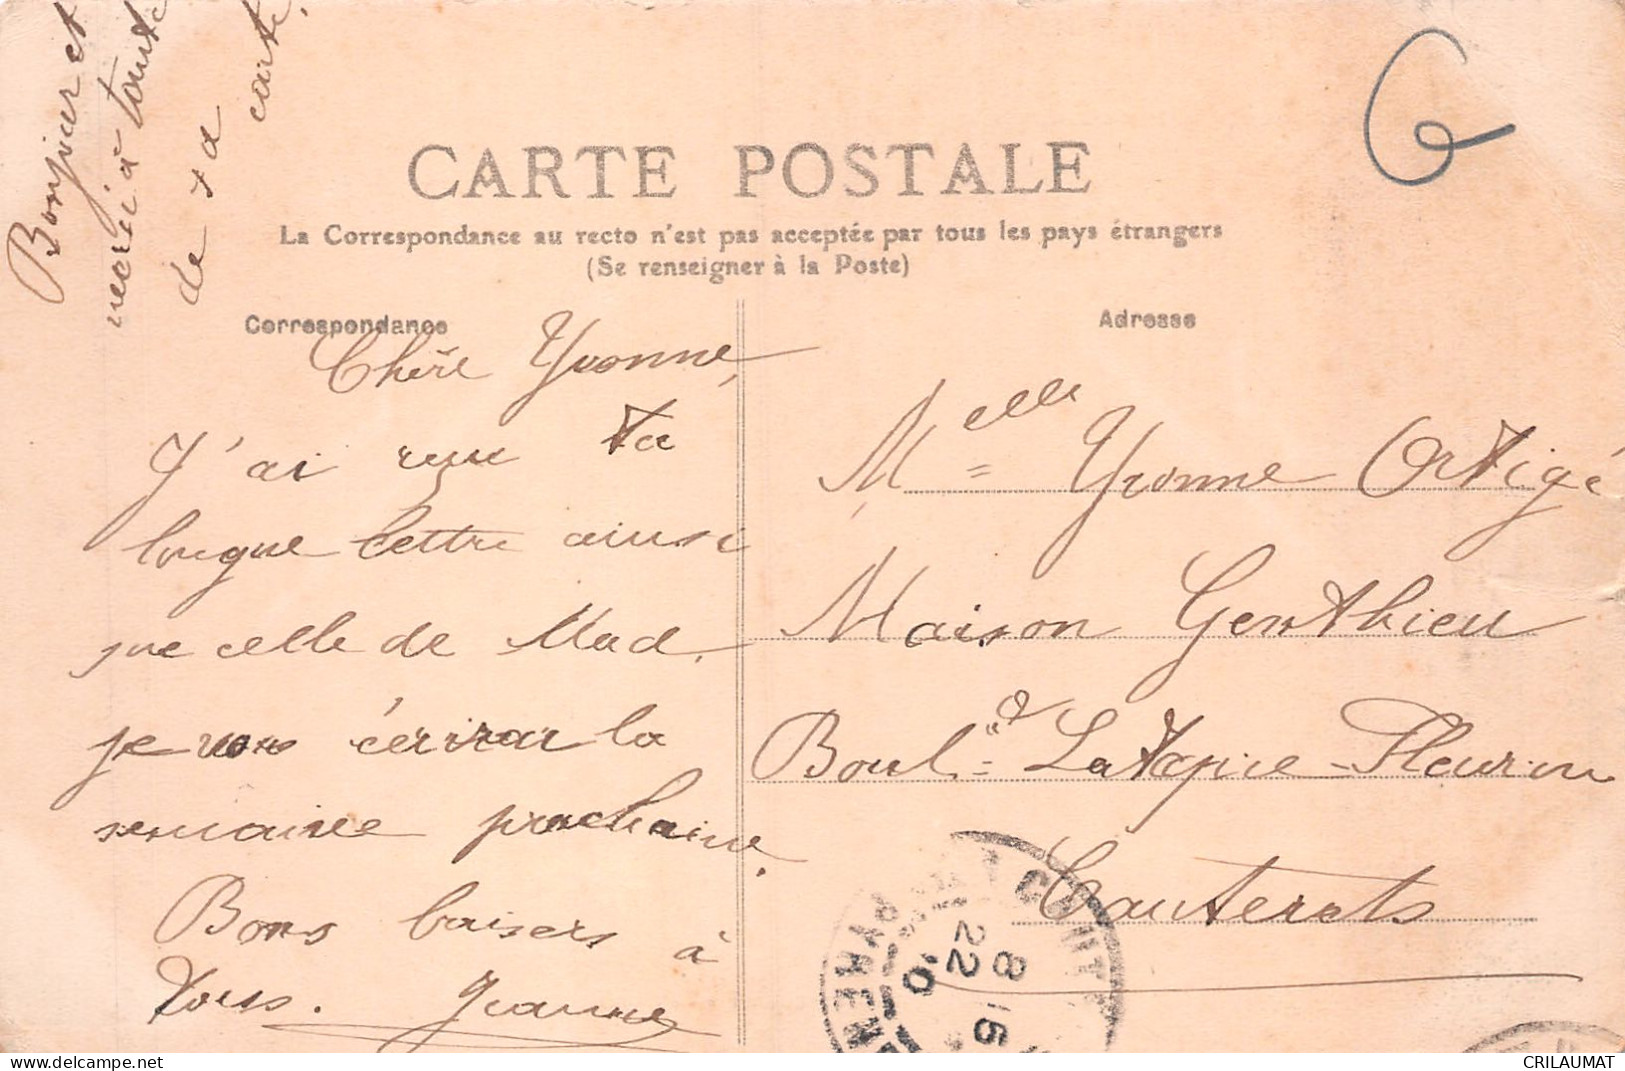 Bonjour et
merci à toute
de ta
carte.
6
CARTE POSTALE
La Correspondance au recto n'est pas acceptée par tous les pays étrangers
(Se renseigner à la Poste)
Correspondance
Chère Yvonne,
J'ai reçu ta
longue lettre ainsi
que celle de Mad.
je vous écrirai la
semaine prochaine.
Bons baisers à
tous. Jeanne
Adresse
Melle Yvonne Ortigé
Maison Genthieu
Bould Latapie-Fleurin
Cauterets
8 15
22
10
PYRÉNÉ
CRILAUMAT